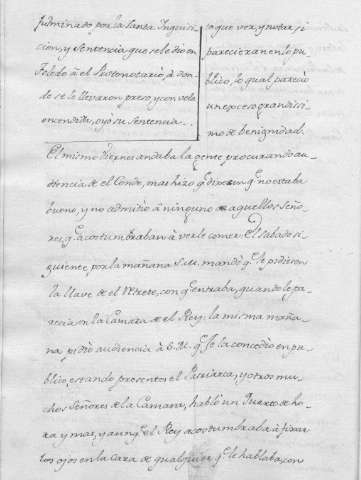 fulminado por la Santa Inquisi-
cion, y Sentencia que se le dio en
Toledo â el Protonotario, à don-
de se lo llevaron preso, y con vela
encendida, oyò su Sentencia...
que ver, y notar, si
parecieran en lo pu-
blico, lo qual pareciò
un exceso grandissi-
mo de benignidad.
El mismo Viernes andaba la gente, procurando au-
diencia de el Conde, mas hizo q.e dixesen q.e no estaba
bueno, y no admitiò â ninguno de aquellos Seño-
res q.e acostumbraban à verle comer. El Sabado si-
guiente, por la mañana S.M. mandò q.e le pidiesen
la llave de el retrete, con q.e entraba, quando le pa-
recia en la Camara de el Rey: la misma maña-
na pidiò audiencia à S.M. q.e se la concediò en pu-
blico, estando presentes el Patriarca, y otros mu-
chos Señores de la Camara, hablò un Quarto de ho-
ra y mas, y aunq.e el Rey acostumbraba à fixar
los ojos en la cara de qualquiera q.e le hablaba, con